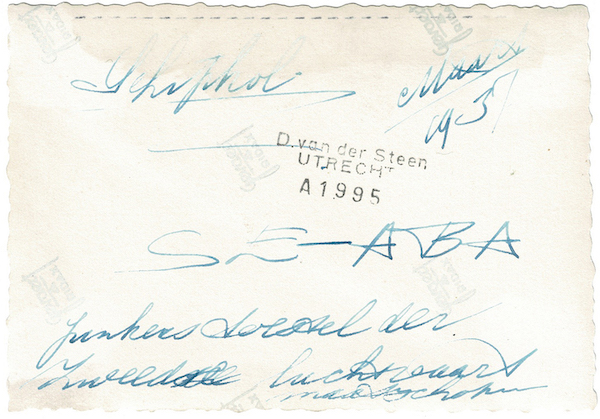 Schiphol
Maart
1937
D. van der Steen
UTRECHT
A1995
SE-ABA
Junkers toestel der
Zweedse luchtvaart
maatschappij